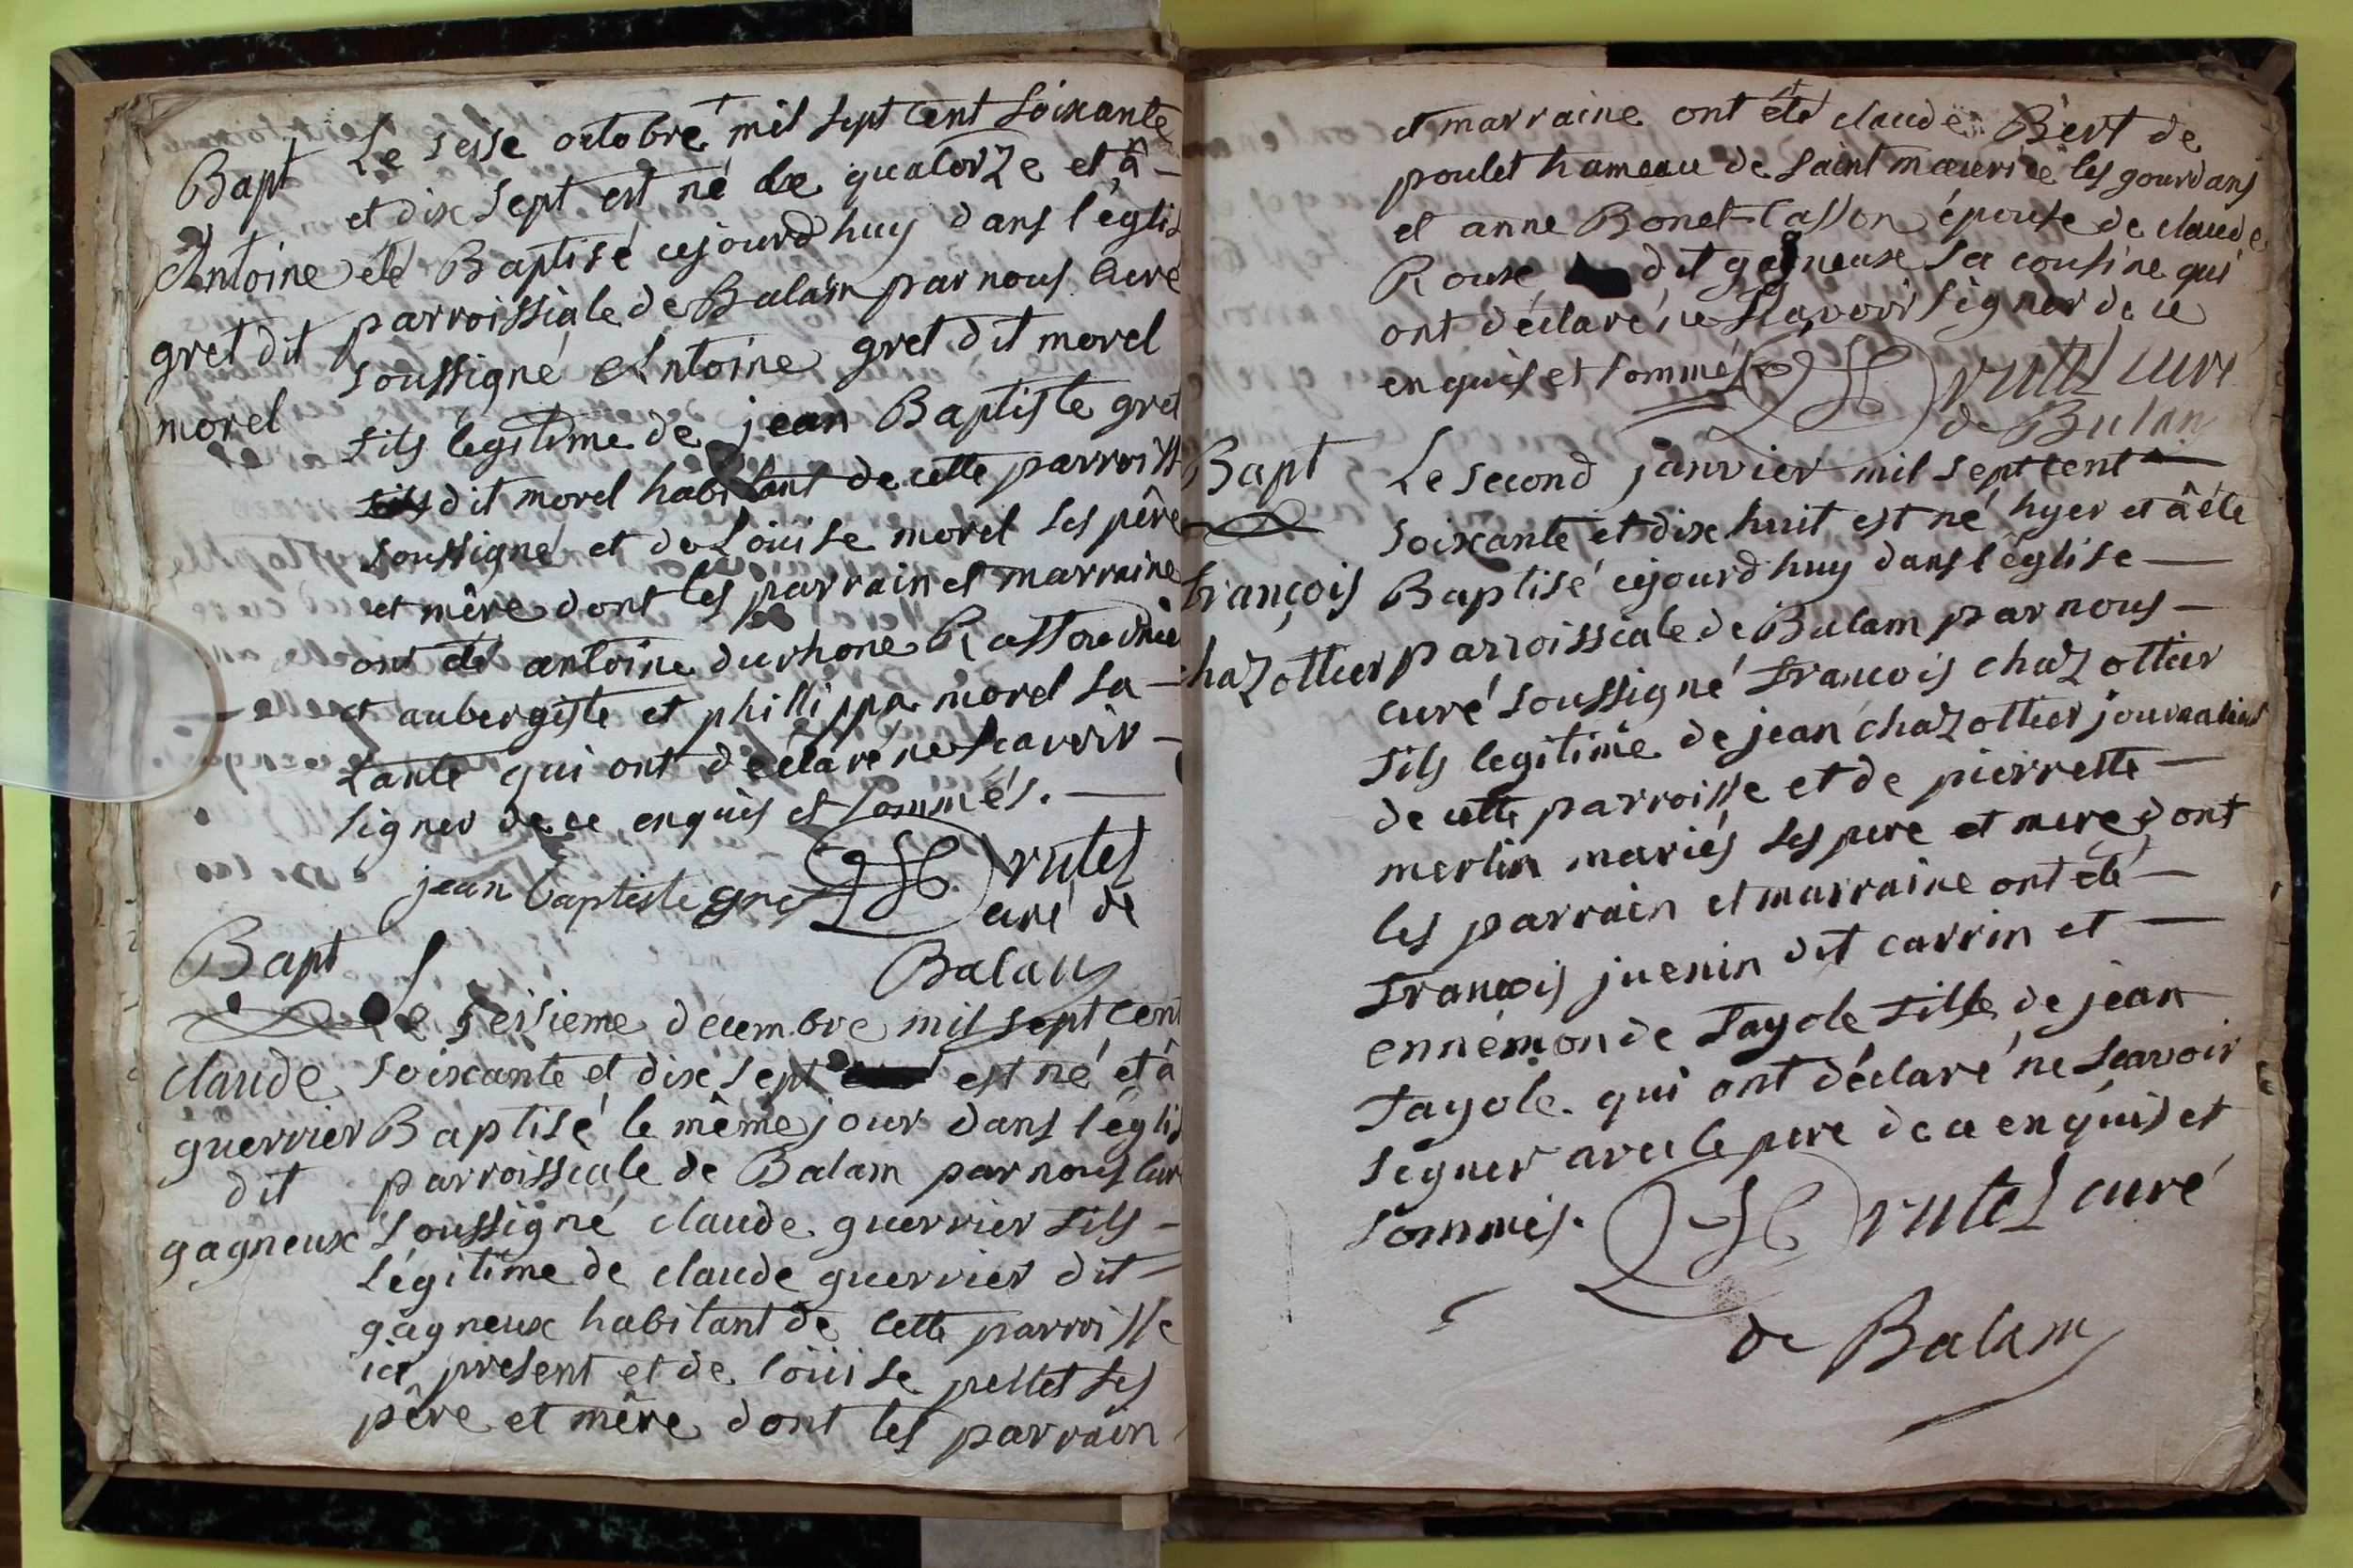 Bapt
Antoine
gret dit
morel
Le seise octobre mil sept cent soixante
et dix sept est né le quatorze et â
été Baptisé cejourd'huy dans l'églis
parroissiale de Balam par nous Curé
soussigné Antoine gret dit morel
fils légitime de jean Baptiste gret
fils dit morel habitant de cette parroiss
soussigné et de Loüise morel ses pêre
et mêre dont les parrain et marraine
ont été antoine durhone
et aubergiste et phillippa morel sa
tante qui ont déclaré ne scavoir
signer de ce enquis et sommés.
jean baptiste gret Drutel
curé de
Balan
Bapt
claude
guerrier
dit
gagneux
Le seisieme decembre mil sept cent
soixante et dix sept est né et â
Baptisé le même jour dans l'églis
parroissiale de Balam par nous Cur
soussigné claude guerrier fils
légitime de claude guerrier dit
gagneux habitant de cette parroisse
ici present et de loüise pellet ses
pêre et mêre dont les parrain
et marraine ont été claude Bert de
poulet hameau de saint maurice les gourdans
et anne Bonet-Casson épouse de claude
Roux dit gagneux sa cousine qui
ont déclaré ne sçavoir signer de ce
enquis et sommés Drutel curé
de Balan
Bapt
françois
chazottier
Le second janvier mil sept cent
soixante et dix huit est né hyer et â été
Baptisé cejourd'huy dans l'église
parroissiale de Balam par nous
curé soussigné françois chazottier
fils legitime de jean chazottier journalier
de cette parroisse et de pierrette
merlin mariés ses pere et mere dont
les parrain et marraine ont été
françois juenin dit carrin et
ennemonde fayole fille de jean
fayole qui ont déclaré ne scavoir
signer avec le pere de ce enquis et
sommés. Drutel curé
de Balam